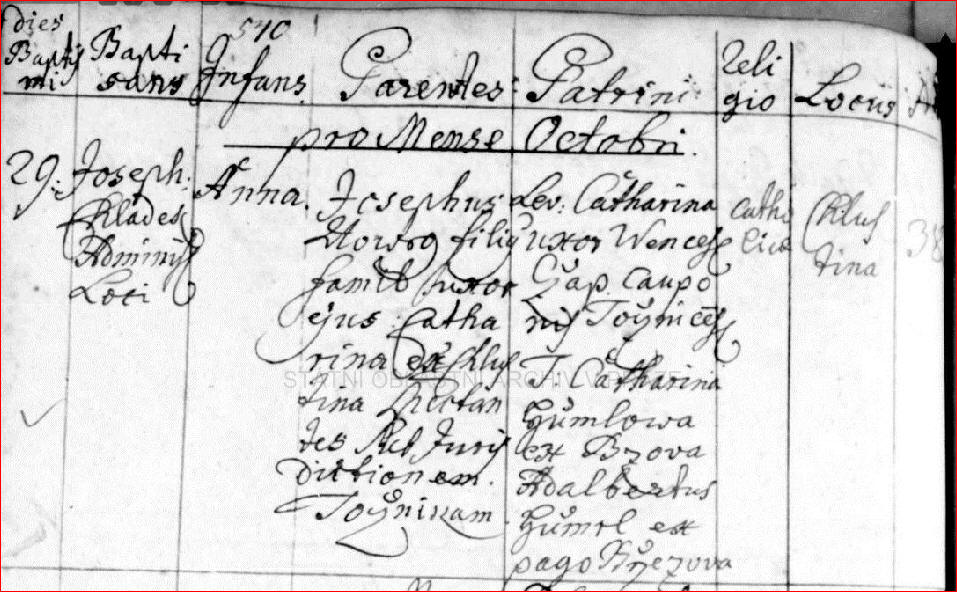 570
dies Baptis mi
Bapti sans
Infans
Parentes
Patrini
Reli gio
Locus
pro Mense Octobri.
29.
Joseph.
Klades
Adminis
Loci
Anna
Josephus
filiq
famil uxor
ejus Catha
rina ex Chlus
tina Spectan
tes Ad Juris
dictionem.
Toÿnikam
Lev. Catharina
uxor Wences
Gap. Caupo
nis Toÿnicen
T. Catharina
Humlowa
ex Bzova
Adalbertus
Humel ex
pago Brzezova
catho
lica
Chlus
tina
38
STÁTNÍ OBLASTNÍ ARCHIV V PRAZE